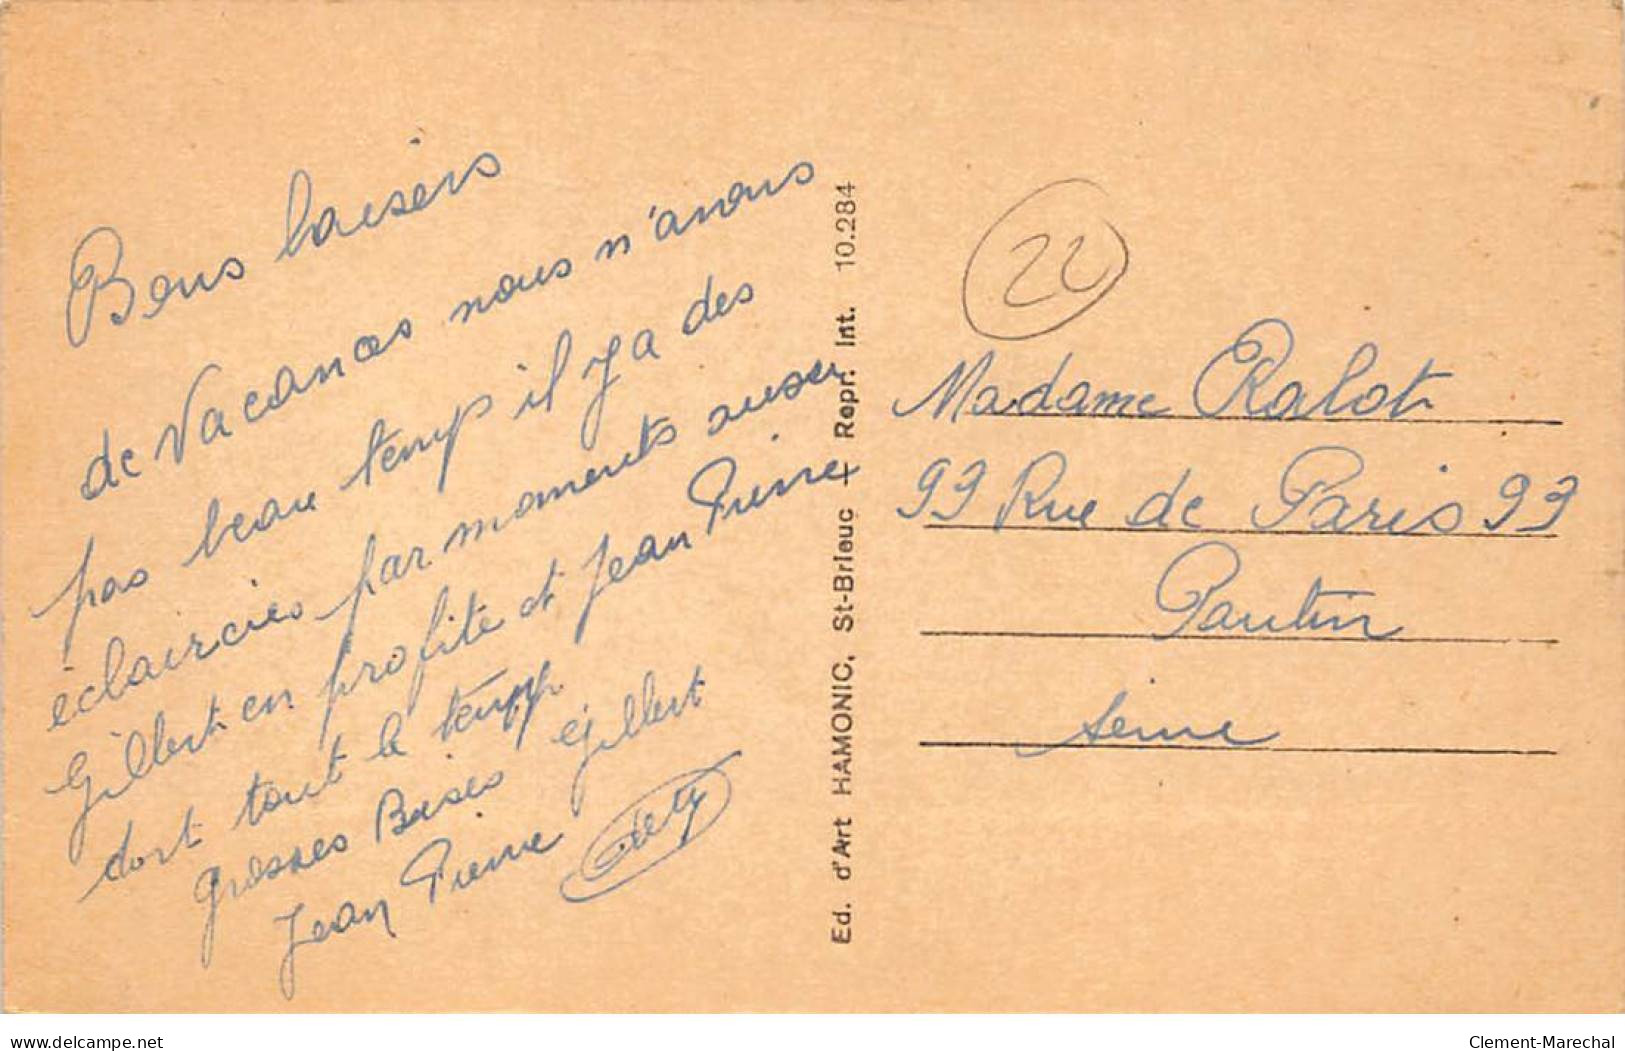 Bons baisers
de Vacances nous n'avons
pas beau temp il y a des
éclaircies par moments aussi
Gilbert en profite et Jean Pierre
dort tout le temp
grosses Baises Gilbert
Jean Pierre
Ed. d'Art HAMONIC, St-Brieuc + Repr. Int. 10.284
22
Madame Ralot
93 Rue de Paris 93
Pantin
Seine
www.delcampe.net
Clement-Marechal